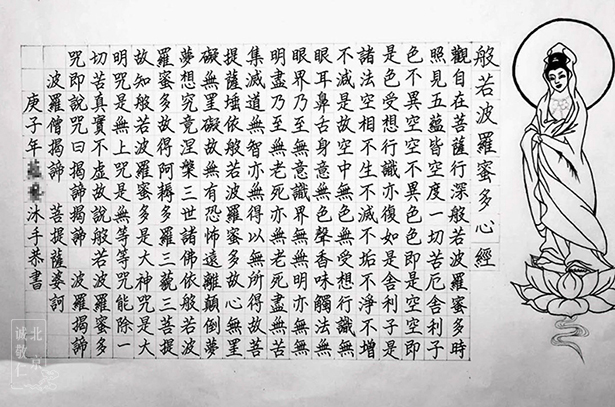 般若波羅蜜多心經
觀自在菩薩行深般若波羅蜜多時
照見五蘊皆空度一切苦厄舍利子
色不異空空不異色色即是空空即
是色受想行識亦復如是舍利子是
諸法空相不生不滅不垢不淨不增
不減是故空中無色無受想行識無
眼耳鼻舌身意無色聲香味觸法無
眼界乃至無意識界無無明亦無無
明盡乃至無老死亦無老死盡無苦
集滅道無智亦無得以無所得故菩
提薩埵依般若波羅蜜多故心無罣
礙無罣礙故無有恐怖遠離顛倒夢
夢想究竟涅槃三世諸佛依般若波
羅蜜多故得阿耨多羅三藐三菩提
故知般若波羅蜜多是大神咒是大
明咒是無上咒是無等等咒能除一
切苦真實不虛故說般若波羅蜜多
咒即說咒曰揭諦揭諦 波羅揭諦
波羅僧揭諦 菩提薩婆訶
庚子年 沐手恭書
北京
诚敬仁